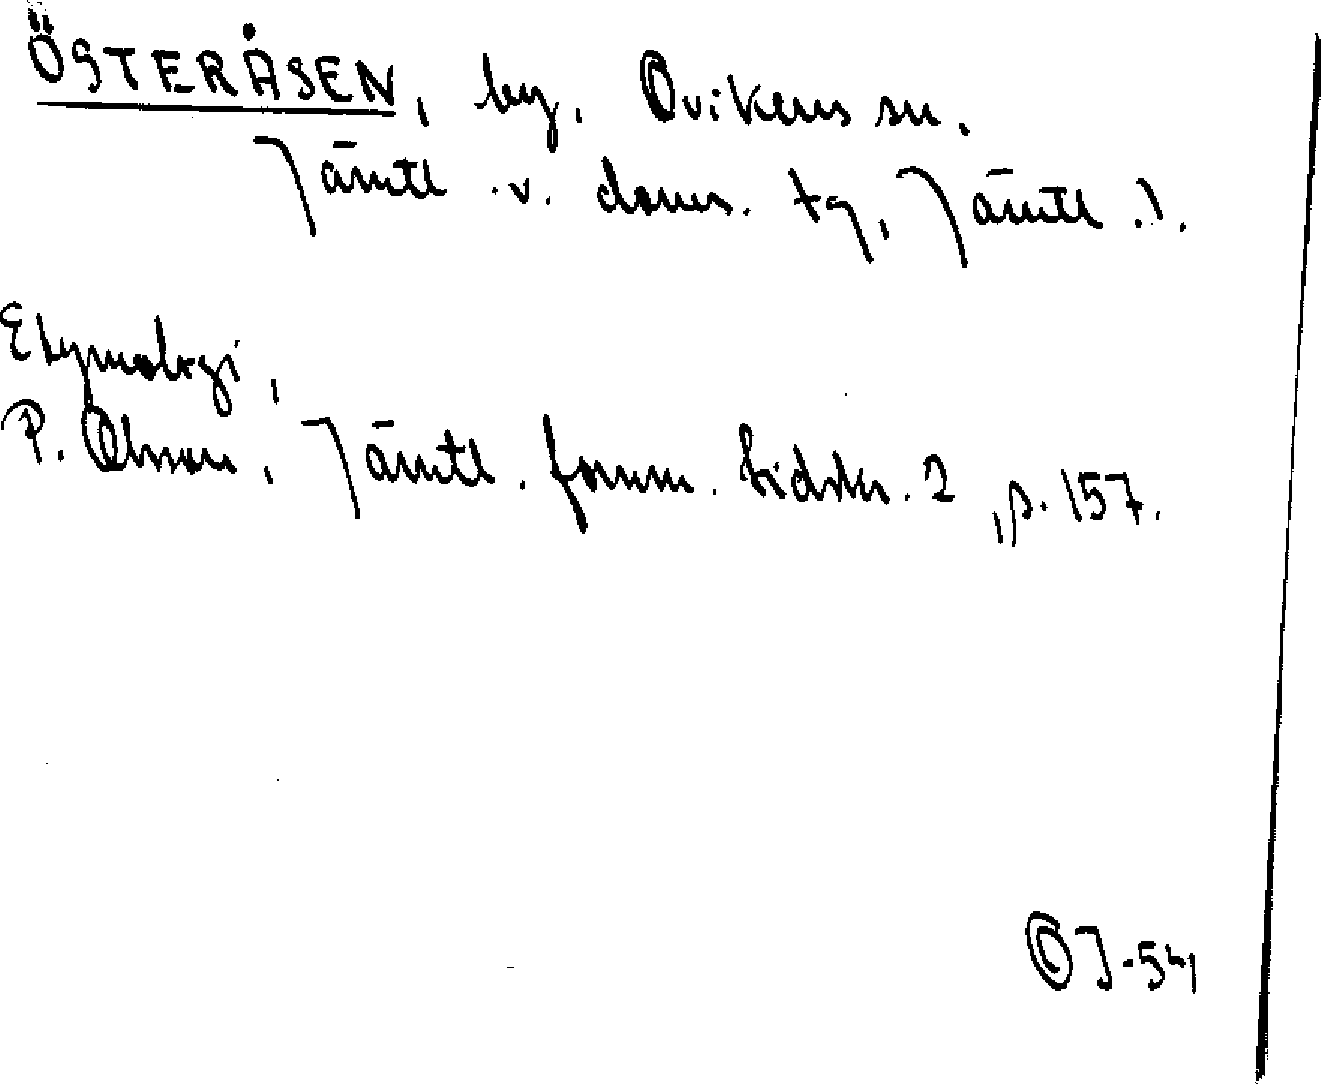 ÖSTERÅSEN, by, Ovikens sn,
Jämtl. v. doms. tg, Jämtl. l.
Etymologi,
P. Olsson, Jämtl. fornm. tidskr. 2, s. 157.
OJ-54